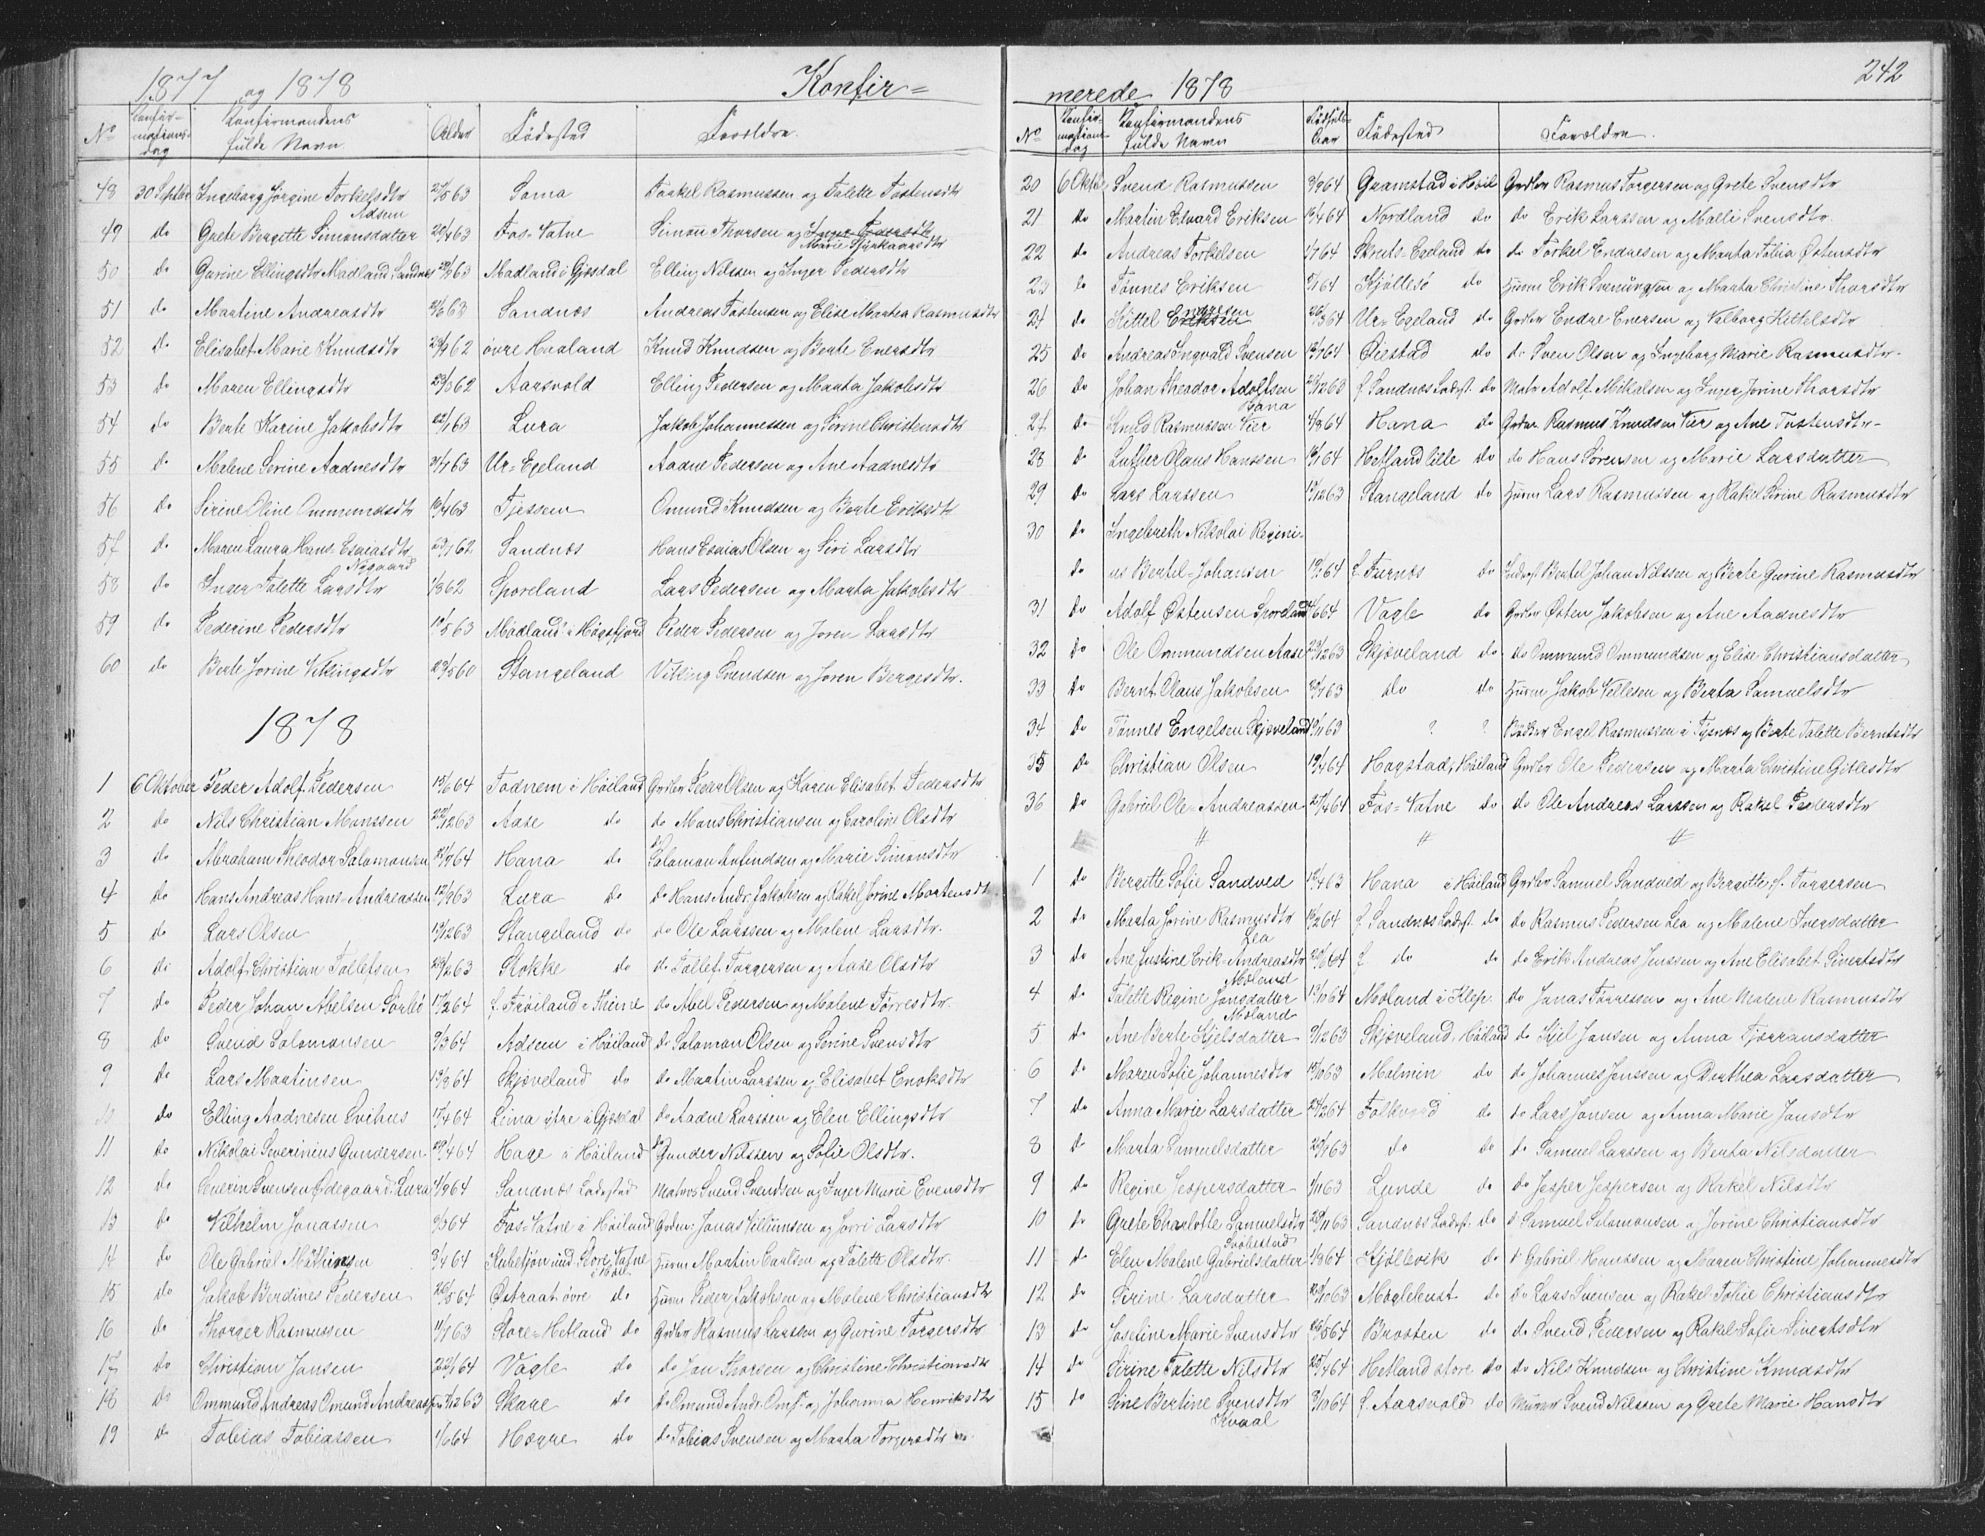 1877 og 1878 Konfir=
No Konfir-mations-dag Konfirmandens fulde Navn Alder Fødested Forældre.
48 30 Septbr Ingeborg Jørgine Torkelsdtr 5 63 Soma Torkel Rasmussen og Talette Tostensdtr
Adsen
49 do Grete Bergitte Simonsdatter 63 Fos-Vatne Simon Thorsen og Inger Pedersdtr
Marie Styrkaarsdtr
50 do Gurine Ellingsdtr Madland Sandnes 63 Madland i Gjesdal Elling Nilssen og Inger Pedersdtr
51 do Martine Andreasdtr 63 Sandnæs Andreas Tostensen og Elise Martea Rasmusdtr
52 do Elisabet Marie Knudsdtr 62 øvre Haaland Knud Knudsen og Berte Enersdtr
53 do Maren Ellingsdtr 62 Aarsvold Elling Pedersen og Marta Jakobsdtr
54 do Berte Karine Jakobsdtr 63 Lura Jakob Johannessen og Serine Christensdtr
55 do Malene Serine Aadnesdtr 63 Ur-Egeland Aadne Pedersen og Ane Aadnesdtr
56 do Sirine Oline Ommundsdtr 63 Tjessem Omund Knudsen og Berte Eriksdtr
57 do Maren Laura Hans-Esaiasdtr 62 Sandnæs Hans Esaias Olsen og Siri Larsdtr
Nygaard
58 do Inger Talette Larsdtr 1/3 62 Sporeland Lars Pedersen og Marta Jakobsdtr
59 do Pederine Pedersdtr 5 63 Madland i Høgsfjord Peder Pedersen og Joren Larsdtr
60 do Berte Jorine Vikingsdtr 29/5 60 Stangeland Viking Svendsen og Joren Bergesdtr.
1878
1 6 Oktober Peder Adolf Pedersen 64 Todnem i Høiland Grdbr Peder Olsen og Karen Elisabet Pedersdtr
2 do Nils Christian Monssen 12 63 Aase do do Mons Christiansen og Caroline Olsdtr
3 do Abraham Theodor Salomonsen 64 Hana do do Salamon Anfindsen og Marie Simonsdtr
4 do Hans Andreas Hans-Andreassen 12/9 63 Lura do do Hans Andr. Jakobsen og Rakel Jorine Mortensdtr
5 do Lars Olsen 12 63 Stangeland do do Ole Larssen og Malene Larsdtr.
6 do Adolf Christian Tolletsen 63 Stokke do do Tollet Torgersen og Aase Olsdtr
7 do Peder Johan Abelsen Sørbø 17/2 64 f. Frøiland i Thime do Abel Pedersen og Malene Torresdtr.
8 do Svend Salomonsen 3 64 Adsen i Høiland do Salamon Olsen og Serine Svensdtr
9 do Lars Martinsen 3 64 Skjæveland do do Martin Larssen og Elisabet Enoksdtr
10 do Elling Aadnesen Svihus 17/4 64 Lima østre i Gjesdal do Aadne Larssen og Elen Ellingsdtr
11 do Nikolai Severinius Gundersen 4 64 Hage i Høiland do Gunder Nilssen og Sofie Olsdtr.
12 do Severin Svensen Ødegaard, Lura 9 64 Sandnæs Ladested Matros Svend Svendsen og Inger Marie Evensdtr
13 do Vilhelm Jonassen 64 Fos-Vatne i Høiland Grdbr: Jonas Villumsen og Jorri Larsdtr
14 do Ole Gabriel Mathinsen 4 64 Kubetjøn und. Store Vatne Husm Martin Carlsen og Talette Olsdtr.
15 do Jakob Berdines Pedersen 26/5 64 Østraat øvre do Husm Peder Jakobsen og Malene Christiansdtr
16 do Thorger Rasmussen 63 Store-Hetland do Grdbr Rasmus Larssen og Gurine Torgersdtr
17 do Christian Jansen 64 Vagle do do Jan Thorsen og Christine Christiansdtr
18 do Ommund Andreas Omund Andreassen 12 63 Skare do do Omund Andr. Oms. og Johanna Henriksdtr
19 do Tobias Tobiassen 6 64 Høgre do do Tobias Svensen og Marta Torgersdtr

merede 1878 242
No Konfir-mations-dag Konfirmandens fulde Navn Fødsels-aar Fødested Forældre.
20 6 Oktbr Svend Rasmussen 64 Gramstad i Høil Grdbr Rasmus Torgersen og Grete Svensdtr
21 do Martin Edvard Eriksen 64 Nordland do do Erik Larssen og Malli Svensdtr.
22 do Andreas Torkelsen 64 Skruts-Egeland do do Torkel Endresen og Marta Tolia Østensdtr
23 do Tønnes Eriksen 64 Kjøllesø do Husm Erik Svenungsen og Marta Christine Thorsdtr
24 do Kittel Eriksen 64 Ur-Egeland do Grdbr Endre Enersen og Valborg Kittelsdtr
25 do Andreas Ingvald Svensen 64 Øiestad do do Sven Olsen og Ingeborg Marie Rasmusdtr.
26 do Johan Theodor Adolfsen 12 63 f. Sandnæs Ladest. do Matr Adolf Mikalsen og Inger Jorine Thorsdtr
Hana
27 do Knud Rasmussen Vier 64 Hana do Grdbr. Rasmus Knudsen Vier og Ane Tostensdtr.
28 do Luther Olaus Hanssen 64 Hetland lille do do Hans Sørensen og Marie Larsdatter
29 do Lars Larssen 12 63 Stangeland do Husm Lars Rasmussen og Rakel Serine Rasmusdtr
30 do Ingebreth Nikolai Regini-
do us Bertel-Johansen 64 f. Furnæs do Bertel Johan Nilssen og Berte Gurine Rasmusdtr
31 do Adolf Østensen Sporeland 6 64 Vagle do Grdbr Østen Jakobsen og Ane Aadnesdtr
32 do Ole Ommundsen Aase 23/12 63 Skjæveland do do Ommund Ommundsen og Elise Christiansdatter
33 do Bernt Olaus Jakobsen 63 do do Husm Jakob Villesen og Berta Samuelsdtr
34 do Tønnes Engelsen Skjæveland 11 63 ? ? Bødker Engel Rasmussen i Tysnæs og Berte Talette Berntsdtr
35 do Christian Olsen 4 64 Hogstad, Høiland Grdbr Ole Pedersen og Marta Christine Gitlesdtr
36 do Gabriel Ole-Andreassen 4 64 Fos-Vatne do do Ole Andreas Larssen og Rakel Pedersdtr
" " "
1 do Bergitte Sofie Sandved 63 Hana i Høiland Grdbr Samuel Sandved og Bergitte f. Torgersen
2 do Marta Jorine Rasmusdtr 2 64 f. Sandnæs Ladest. do do Rasmus Pedersen Lea og Malene Iversdatter
Lea
3 do Ane Justine Erik-Andreasdtr 64 f. do do do Erik Andreas Jenssen og Ane Elisabet Sivertsdtr
Moland
4 do Talette Regine Jonsdatter 64 Moland i Klep. do Jonas Torressen og Ane Malene Rasmusdtr
Moland
5 do Ane Berte Kjelsdatter 12 63 Skjæveland, Høiland do Kjel Jansen og Anna Tjerransdatter
6 do Maren Sofie Johannesdtr 10 63 Malmin do do Johannes Jenssen og Dorthea Larsdatter
7 do Anna Marie Larsdatter 2 64 Folkvord do do Lars Jansen og Anna Marie Jansdtr
8 do Marta Samuelsdatter 63 do do do Samuel Larssen og Berta Nilsdatter
9 do Regine Jespersdatter 11 63 Lunde do do Jesper Jespersen og Rakel Nilsdtr
10 do Grete Charlotte Samuelsdtr 11 63 Sandnæs Ladest. do do Samuel Salomonsen og Jorine Christiansdtr
11 do Elen Malene Gabrielsdatter 64 Kjøllevik do do Gabriel Hanssen og Maren Christine Johannesdtr
12 do Sirine Larsdatter 10 63 Møglebust do do Lars Svensen og Rakel Tolie Christiansdtr
13 do Joseline Marie Svensdtr 5 64 Brusten do do Svend Pedersen og Rakel Sofie Sivertsdtr
14 do Sirine Talette Nilsdtr 25/4 64 Hetland store do do Nils Knudsen og Christine Knudsdtr
15 do Sine Bertine Svensdtr 10 64 f. Aarsvold do Murer Svend Nilssen og Grete Marie Hansdtr
Kvaal